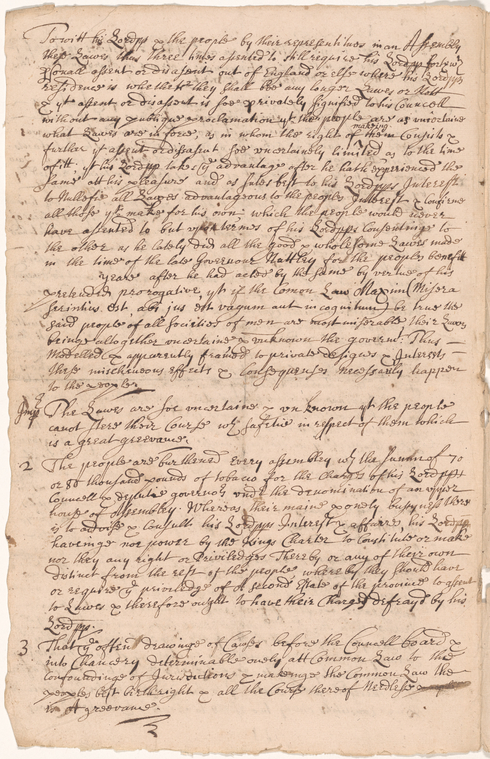 To witt his Lordpp & the people by their representitives in an Assembly
these Lawes thus three times assented to still require his Lordpp
psonall assent or disassent out of England or else where his Lordpps
residence is whether they shall bee any longer Lawes or Nott
& yt assent or disassent is soe privately signified to his Councell
without any publique proclamation yt the people are as uncertaine
what Lawes are in force, as in whom the right of making them Consists &
further yt assent or disassent soe uncertainly limited as to the time
of itt yt his Lordpp takes ye advantage after he hath experienced the
same att his pleasure and as sutes best to his Lordpps Interest
to Nullefie all Lawes advantageous to the peoples Interest & confirme
all those yt make for his own: which the people would never
have assented to but upon termes of his Lordpps Consentinge to
the other as he lately did all the good & wholesome Lawes made
in the time of the late Governour Nuttley for the peoples benefitt
yeare after he had acted by the same by vertue of his
pretended prorogative, yt if the Comon Law Maxim (Misera
servitus est abi jus est vagum aut incognitum) be true the
said people of all societies of men are most miserable their Lawes
beinge alltogether uncertaine & unknown the governt: Thus
Modelled & apparently framed to private designes & Interests
these mischeivous effects & Consequenses necessarily happen
to the people.
The Lawes are soe uncertaine & unknown yt the people
canot steere their Course wth safetie in respect of them which
is a great greevance.
2 The people are burthend Every assembley wth the sum of 70
or 80 thousand pounds of tobacco for the Charges of his Lordpps
Councell & deputie governor under the denomination of an upper
house of Assembley: Whereas their maine & onely busyness there
is to advise & Consult his Lordpps Interest & affaires, his Lordpp
haveinge nor power by the Kings Charter to Constitute or make
nor they any right or Priviledges Thereby or any of their own
distinct from the rest of the people whereby they should have
or require ye priviledge of A second Estate of the province to assent
to Lawes & therefore ought to have their Charges defrayd by his
Lordpp.
3 That ye often drawinge of Causes before the Councell board &
into Chancery determinable onely att Common Law to the
confoundinge of Jurisdictions & makeinge the Common Law the
peoples best birthright & all the Course thereof Needlesse
is A greevance.